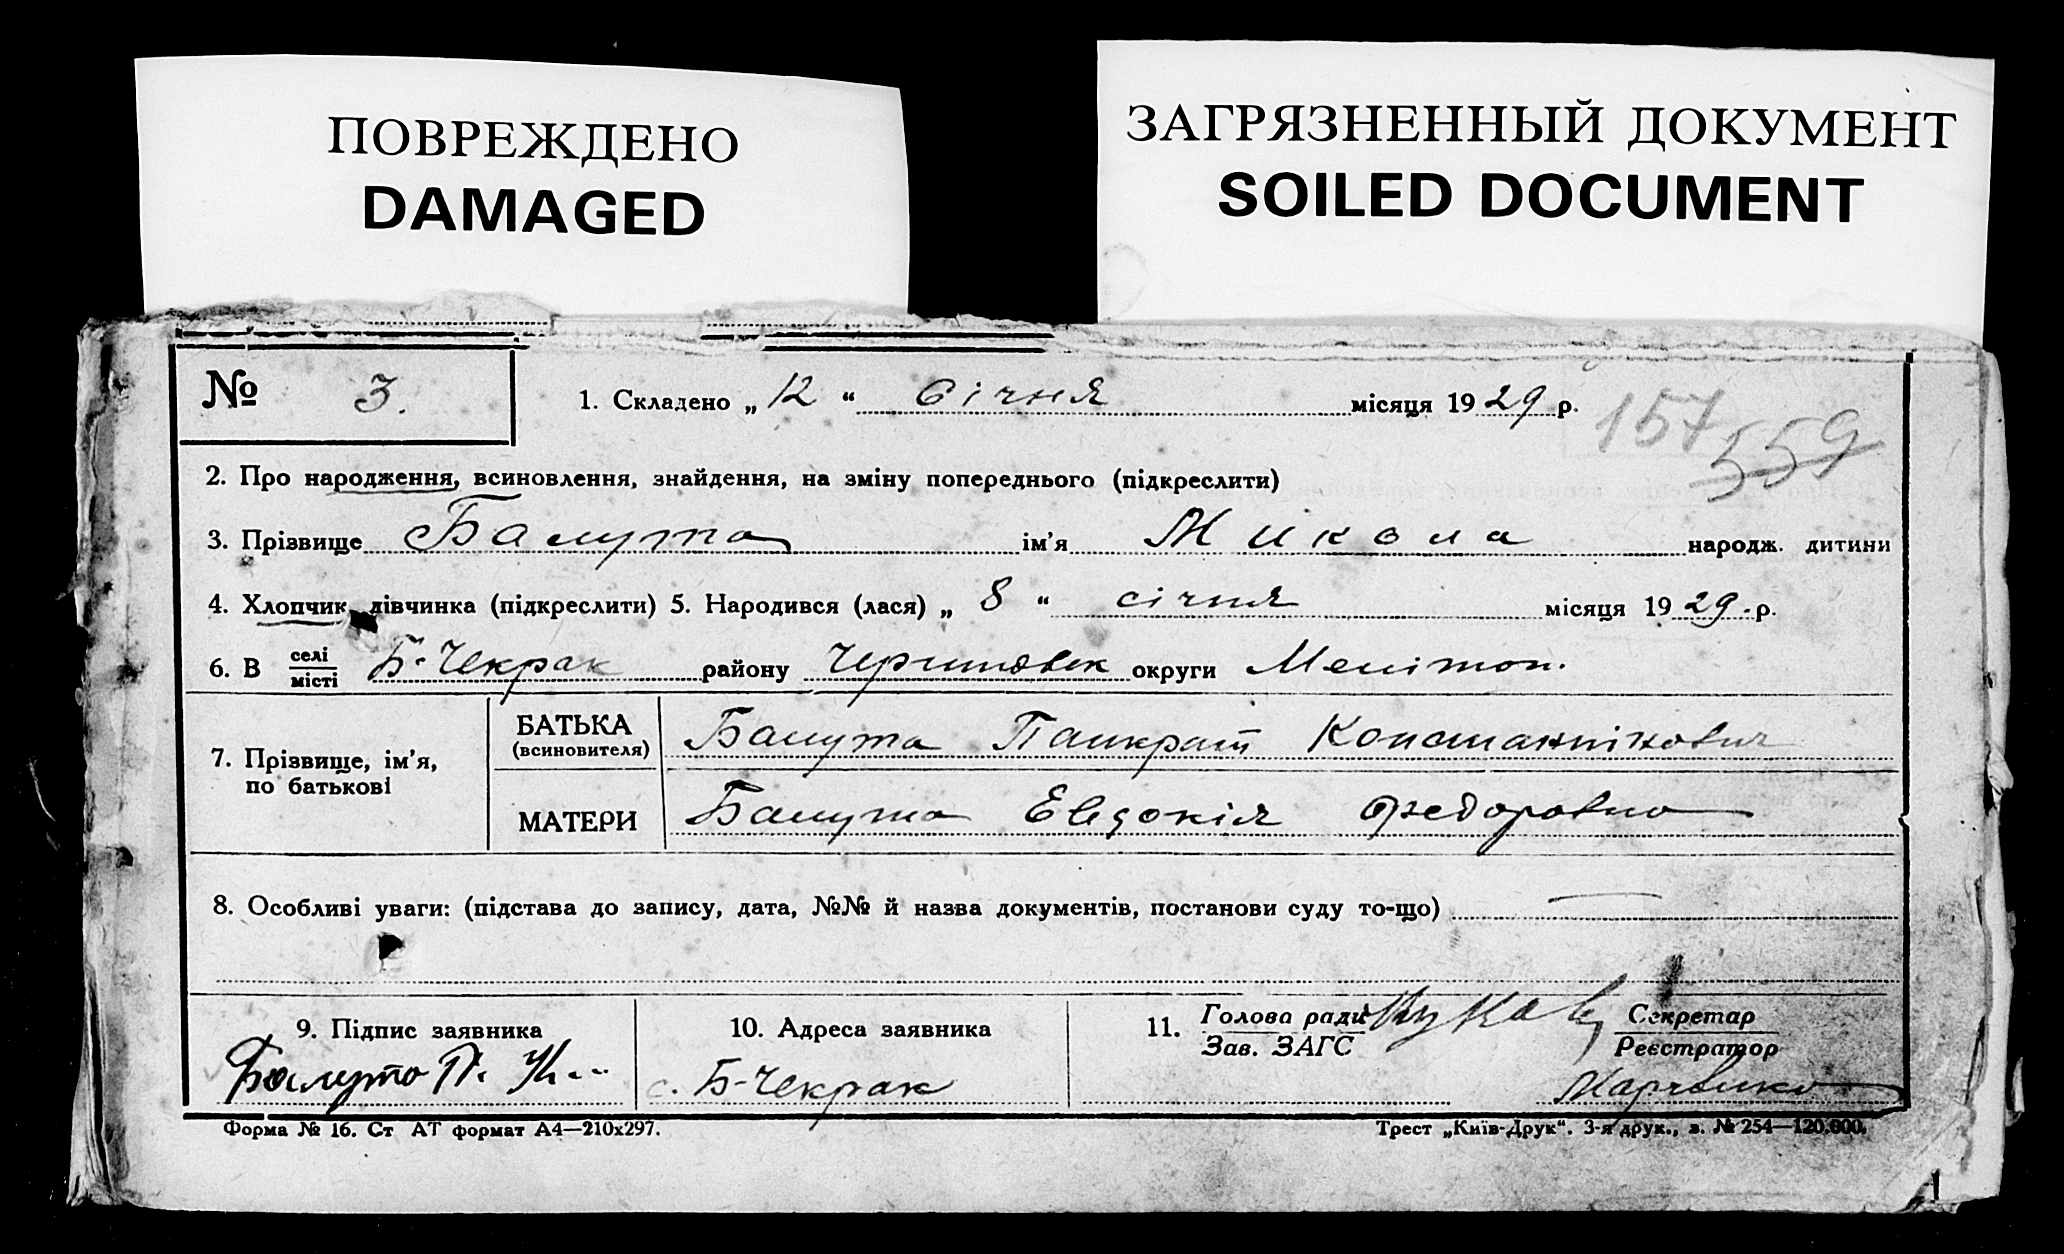 ПОВРЕЖДЕНО
DAMAGED
ЗАГРЯЗНЕННЫЙ ДОКУМЕНТ
SOILED DOCUMENT
№ 3. 1. Складено „ 12 “ Січня місяця 1929 р.
157
559
2. Про народження, всиновлення, знайдення, на зміну попереднього (підкреслити)
3. Прізвище Балута ім'я Микола народж. дитини
4. Хлопчик, дівчинка (підкреслити) 5. Народився (лася) „ 8 “ січня місяця 1929.р.
6. В селі місті Б-Чекрак району округи Меліtоп.
7. Прізвище, ім'я, по батькові
БАТЬКА (всиновителя) Балута Панкрат Константінович
МАТЕРИ Балута Евдокія Федоровна
8. Особливі уваги: (підстава до запису, дата, №№ й назва документів, постанови суду то-що)
9. Підпис заявника
Балута П.
10. Адреса заявника
с. Б-Чекрак
11. Голова ради Зав. ЗАГС
Секретар Реєстратор
Форма № 16. Ст АТ формат А4—210х297.
Трест „Київ-Друк“. 3-я друк., з. № 254—120.000.